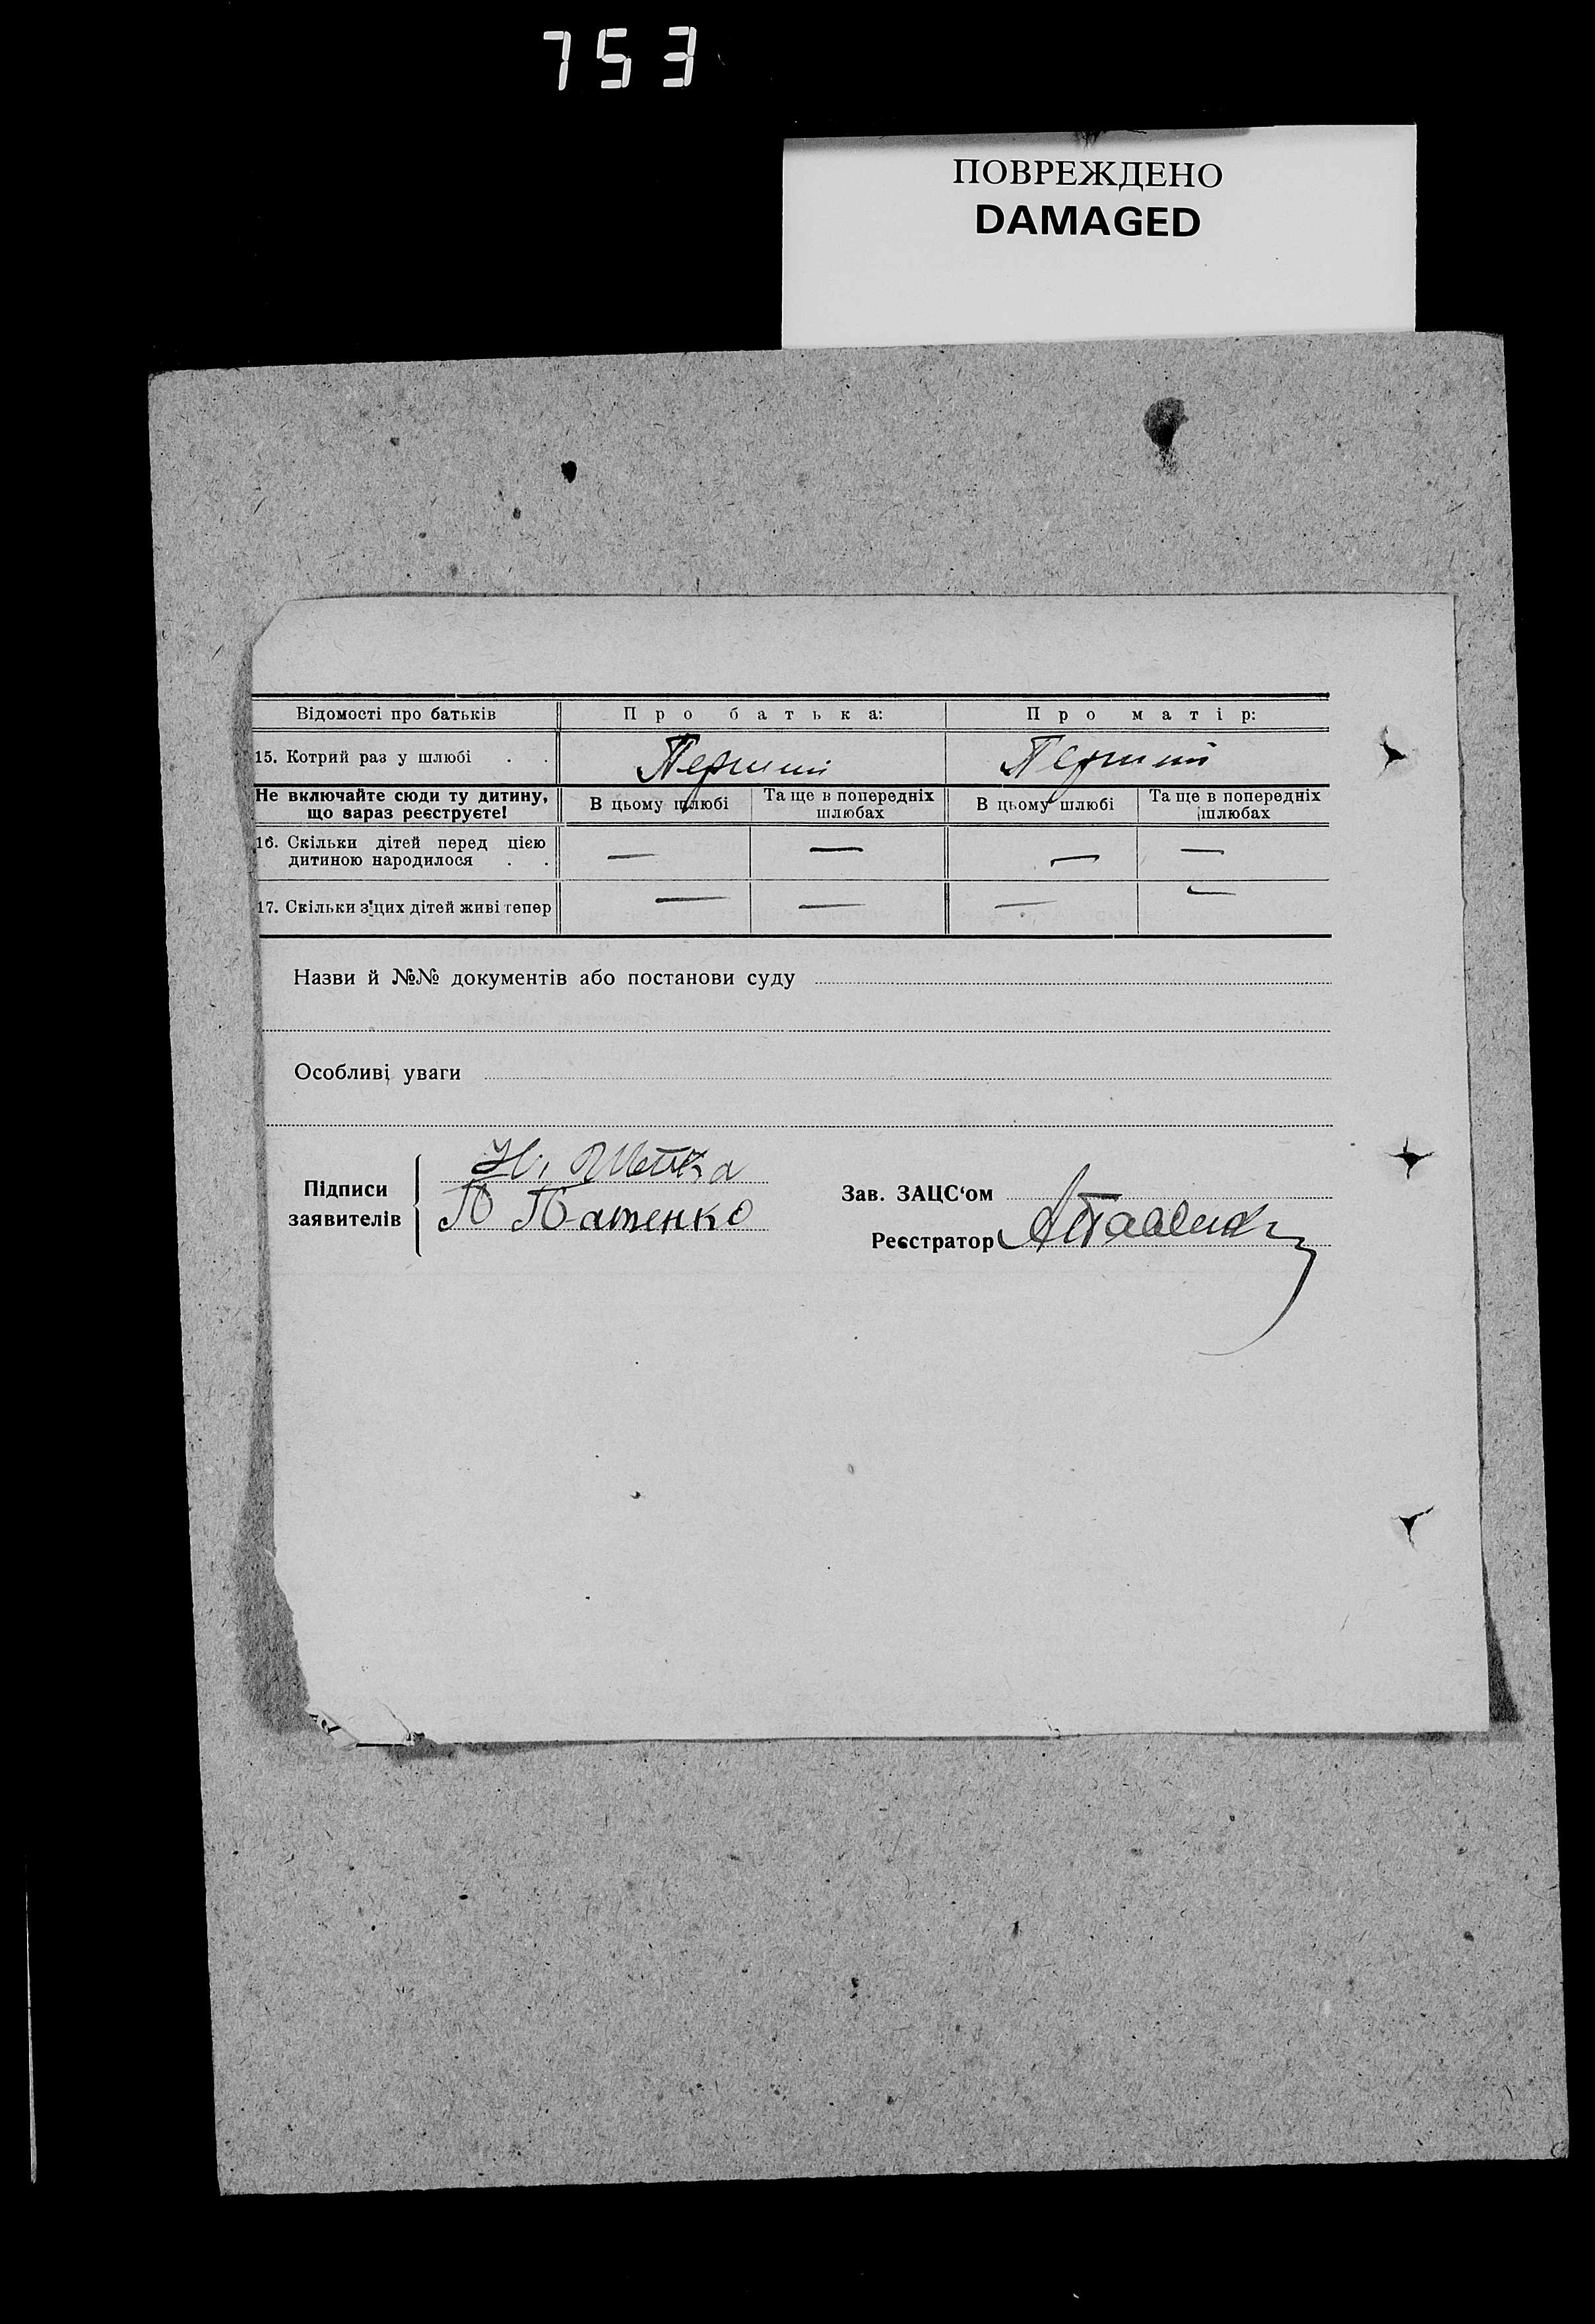 753
ПОВРЕЖДЕНО
DAMAGED
Відомості про батьків Про батька: Про матір:
15. Котрий раз у шлюбі . . Перший Перший
Не включайте сюди ту дитину, що зараз реєструєте! В цьому шлюбі Та ще в попередніх шлюбах В цьому шлюбі Та ще в попередніх шлюбах
16. Скільки дітей перед цією дитиною народилося . . — — — —
17. Скільки з цих дітей живі тепер — — — —
Назви й №№ документів або постанови суду
Особливі уваги
Підписи заявителів
П Патенко
Зав. ЗАЦС‘ом
Реєстратор